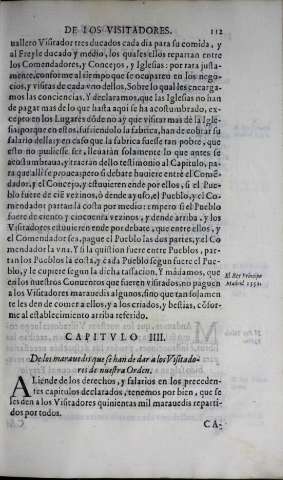 DE LOS VISITADORES. 112
uallero Visitador tres ducados cada dia para su comida, y
al Freyle ducado y medio, los quales ellos repartan entre
los Comendadores, y Concejos, y Iglesias: por rata justa-
mente, conforme al tiempo que se ocuparen en los nego-
cios, y visitas de cada vno dellos, Sobre lo qual les encarga-
mos las conciencias. Y declaramos, que las Iglesias no han
de pagar mas de lo que hasta aqui se ha acostumbrado, ex-
cepto en los Lugares dõde no ay que visitar mas de la Igle-
sia: porque en estos, sufriendolo la fabrica, han de cobrar su
salario della: y en caso que la fabrica fuesse tan pobre, que
esto no pudiesse ser, lleuarãn solamente lo que antes se
acostumbraua, y traeran dello testimonio al Capitulo, pa-
ra que alli se prouea: pero si debate huuiere entre el Comẽ-
dador, y el Concejo, y estuuieren ende por ellos, si el Pue-
blo fuere de ciẽ vezinos, ò dende ayuso, el Pueblo, y el Co-
mendador partan la costa por medio: empero si el Pueblo
fuere de ciento y cincuenta vezinos, y dende arriba, y los
Visitadores estuuieren ende por debate, que entre ellos, y
el Comendador sea, pague el Pueblo las dos partes, y el Co-
mendador la vna. Y si la quistion fuere entre Pueblos, par-
tan los Pueblos la costa, y cada Pueblo segun fuere el Pue-
blo, y le cupiere segun la dicha tassacion. Y mãdamos, que
en los nuestros Conuentos que fueren visitados, no paguen
a los Visitadores marauedis algunos, sino que tan solamen-
te les den de comer a ellos, y a los criados, y bestias, cõfor-
me al establecimiento arriba referido.
El Rey Principe
Madrid 1552.
CAPITVLO IIII.
De los marauedis que se han de dar a los Visitado-
res de nuestra Orden.
ALiende de los derechos, y salarios en los preceden-
tes capitulos declarados, tenemos por bien, que se
les den a los Visitadores quinientas mil marauedis reparti-
dos por todos.
CA-